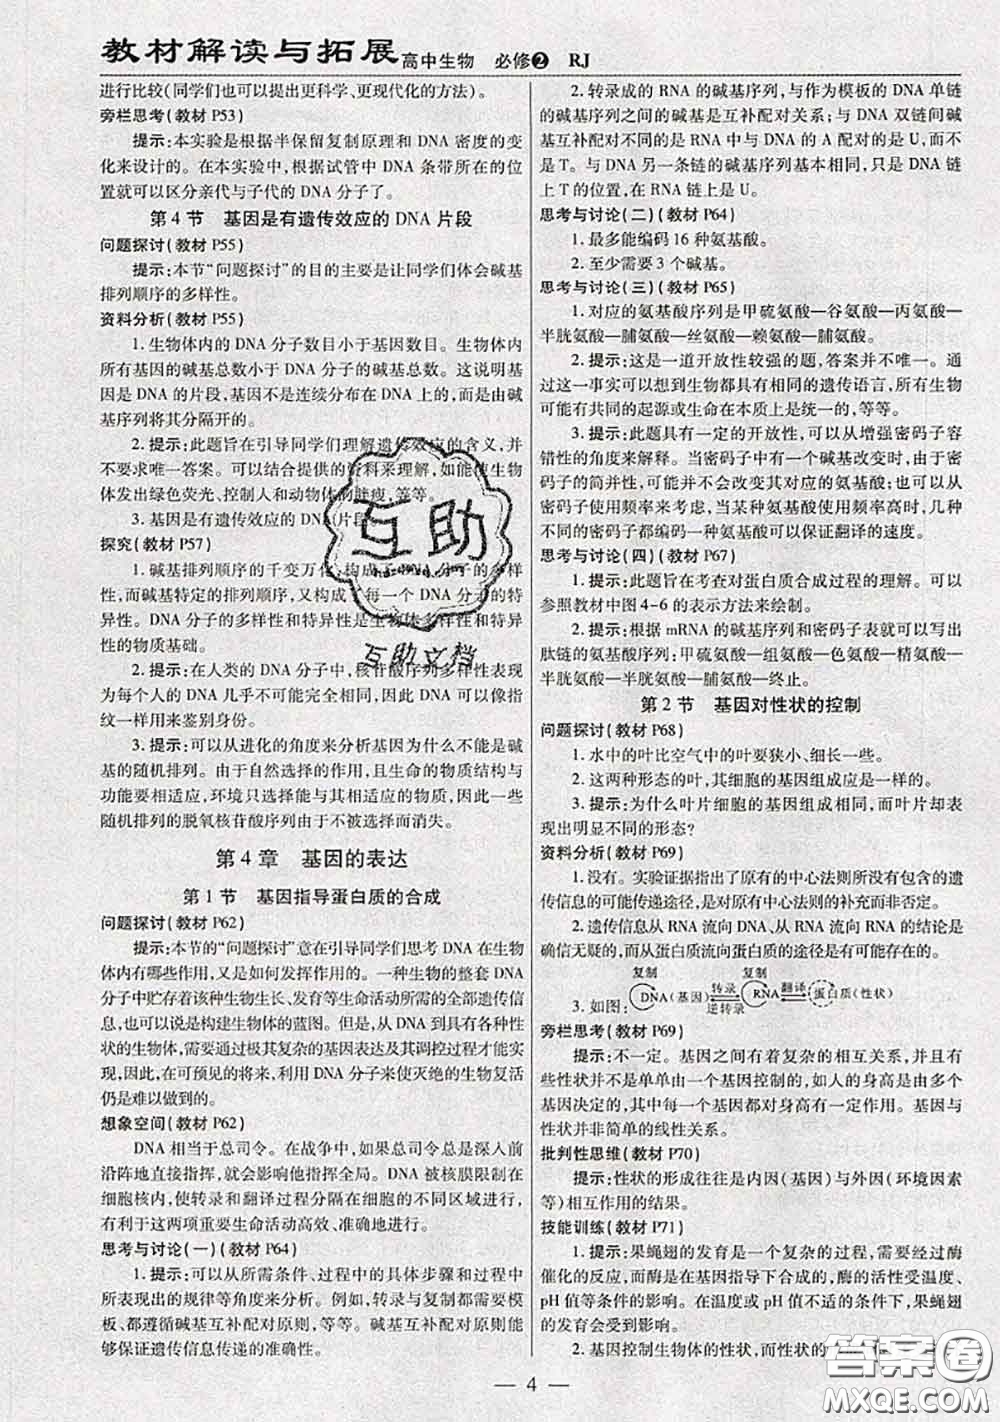 教材解读与拓展 高中生物 必修❷ RJ
进行比较(同学们也可以提出更科学、更现代化的方法)。
旁栏思考(教材 P53)
提示:本实验是根据半保留复制原理和 DNA 密度的变
化来设计的。在本实验中,根据试管中 DNA 条带所在的位
置就可以区分亲代与子代的 DNA 分子了。
第 4 节 基因是有遗传效应的 DNA 片段
问题探讨(教材 P55)
提示:本节“问题探讨”的目的主要是让同学们体会碱基
排列顺序的多样性。
资料分析(教材 P55)
1. 生物体内的 DNA 分子数目小于基因数目。生物体内
所有基因的碱基总数小于 DNA 分子的碱基总数。这说明基
因是 DNA 的片段,基因不是连续分布在 DNA 上的,而是由碱
基序列将其分隔开的。
2. 提示:此题旨在引导同学们理解遗传效应的含义,并
不要求唯一答案。可以结合提供的资料来理解,如能使生物
体发出绿色荧光、控制人和动物体的胖瘦,等等。
3. 基因是有遗传效应的 DNA 片段。
探究(教材 P57)
1. 碱基排列顺序的千变万化,构成了 DNA 分子的多样
性,而碱基特定的排列顺序,又构成了每一个 DNA 分子的特
异性。DNA 分子的多样性和特异性是生物体多样性和特异
性的物质基础。
2. 提示:在人类的 DNA 分子中,核苷酸序列多样性表现
为每个人的 DNA 几乎不可能完全相同,因此 DNA 可以像指
纹一样用来鉴别身份。
3. 提示:可以从进化的角度来分析基因为什么不能是碱
基的随机排列。由于自然选择的作用,且生命的物质结构与
功能要相适应,环境只选择能与其相适应的物质,因此一些
随机排列的脱氧核苷酸序列由于不被选择而消失。
第 4 章 基因的表达
第 1 节 基因指导蛋白质的合成
问题探讨(教材 P62)
提示:本节的“问题探讨”意在引导同学们思考 DNA 在生物
体内有哪些作用,又是如何发挥作用的。一种生物的整套 DNA
分子中贮存着该种生物生长、发育等生命活动所需的全部遗传信
息,也可以说是构建生物体的蓝图。但是,从 DNA 到具有各种性
状的生物体,需要通过极其复杂的基因表达及其调控过程才能实
现,因此,在可预见的将来,利用 DNA 分子来使灭绝的生物复活
仍是难以做到的。
想象空间(教材 P62)
DNA 相当于总司令。在战争中,如果总司令总是深入前
沿阵地直接指挥,就会影响他指挥全局。DNA 被核膜限制在
细胞核内,使转录和翻译过程分隔在细胞的不同区域进行,
有利于这两项重要生命活动高效、准确地进行。
思考与讨论(一)(教材 P64)
1. 提示:可以从所需条件、过程中的具体步骤和过程中
所表现出的规律等角度来分析。例如,转录与复制都需要模
板、都遵循碱基互补配对原则,等等。碱基互补配对原则能
够保证遗传信息传递的准确性。
2. 转录成的 RNA 的碱基序列,与作为模板的 DNA 单链
的碱基序列之间的碱基是互补配对关系;与 DNA 双链间碱
基互补配对不同的是 RNA 中与 DNA 的 A 配对的是 U,而不
是 T。与 DNA 另一条链的碱基序列基本相同,只是 DNA 链
上 T 的位置,在 RNA 链上是 U。
思考与讨论(二)(教材 P64)
1. 最多能编码 16 种氨基酸。
2. 至少需要 3 个碱基。
思考与讨论(三)(教材 P65)
1. 对应的氨基酸序列是甲硫氨酸—谷氨酸—丙氨酸—
半胱氨酸—脯氨酸—丝氨酸—赖氨酸—脯氨酸。
2. 提示:这是一道开放性较强的题,答案并不唯一。通
过这一事实可以想到生物都具有相同的遗传语言,所有生物
可能有共同的起源或生命在本质上是统一的,等等。
3. 提示:此题具有一定的开放性,可以从增强密码子容
错性的角度来解释。当密码子中有一个碱基改变时,由于密
码子的简并性,可能并不会改变其对应的氨基酸;也可以从
密码子使用频率来考虑,当某种氨基酸使用频率高时,几种
不同的密码子都编码一种氨基酸可以保证翻译的速度。
思考与讨论(四)(教材 P67)
1. 提示:此题旨在考查对蛋白质合成过程的理解。可以
参照教材中图 4-6 的表示方法来绘制。
2. 提示:根据 mRNA 的碱基序列和密码子表就可以写出
肽链的氨基酸序列:甲硫氨酸—组氨酸—色氨酸—精氨酸—
半胱氨酸—脯氨酸—终止。
第 2 节 基因对性状的控制
问题探讨(教材 P68)
1. 水中的叶比空气中的叶要狭小、细长一些。
2. 这两种形态的叶,其细胞的基因组成应是一样的。
3. 提示:为什么叶片细胞的基因组成相同,而叶片却表
现出明显不同的形态?
资料分析(教材 P69)
1. 没有。实验证据指出了原有的中心法则所没有包含的遗
传信息的可能传递途径,是对原有中心法则的补充而非否定。
2. 遗传信息从 RNA 流向 DNA、从 RNA 流向 RNA 的结论是
确信无疑的,而从蛋白质流向蛋白质的途径是有可能存在的。
复制 复制
3. 如图: DNA(基因) 转录 逆转录 RNA 翻译 蛋白质(性状)
旁栏思考(教材 P69)
提示:不一定。基因之间有着复杂的相互关系,并且有
些性状并不是单单由一个基因控制的,如人的身高是由多个
基因决定的,其中每一个基因都对身高有一定作用。基因与
性状并非简单的线性关系。
批判性思维(教材 P70)
提示:性状的形成往往是内因(基因)与外因(环境因素
等)相互作用的结果。
技能训练(教材 P71)
1. 提示:果蝇翅的发育是一个复杂的过程,需要经过酶
催化的反应,而酶是在基因指导下合成的,酶的活性受温度、
pH 值等条件的影响。在温度或 pH 值不适的条件下,果蝇翅
的发育会受到影响。
2. 基因控制生物体的性状,而性状的
— 4 —
互助
互助文档
答案圈
MXQE.COM